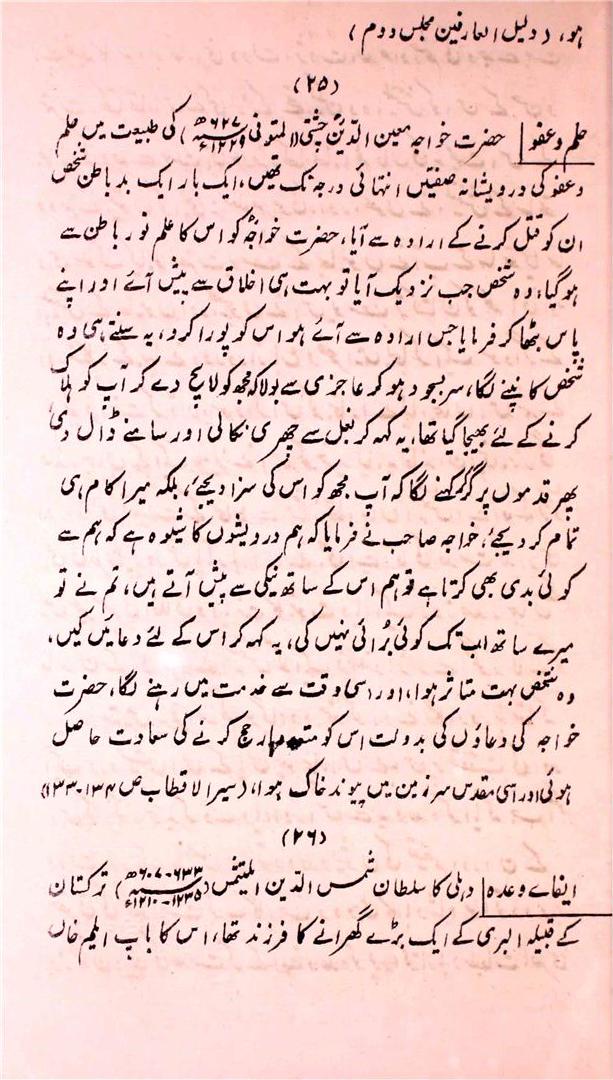 ہو، (دلیل العارفین مجلس دوم)
(۲۵)
حلم و عفو حضرت خواجہ معین الدین چشتیؒ (المتوفی ۶۲۷ھ ۱۲۲۹ء) کی طبیعت میں حلم
وعفو کی درویشانہ صفتیں انتہائی درجہ تک تھیں، ایک بار ایک بد باطن شخص
ان کو قتل کرنے کے ارادہ سے آیا، حضرت خواجہؒ کو اس کا علم نور باطن سے
ہو گیا، وہ شخص جب نزدیک آیا تو بہت ہی اخلاق سے پیش آئے اور اپنے
پاس بٹھا کر فرمایا جس ارادہ سے آئے ہو اس کو پورا کرو، یہ سنتے ہی وہ
شخص کانپنے لگا، سربسجود ہو کر عاجزی سے بولا کہ مجھ کو لالچ دے کر آپ کو ہلاک
کرنے کے لئے بھیجا گیا تھا، یہ کہہ کر بغل سے چھری نکالی اور سامنے ڈال دی،
پھر قدموں پر گر کر کہنے لگا کہ آپ مجھ کو اس کی سزا دیجئے، بلکہ میرا کام ہی
تمام کر دیجئے، خواجہ صاحب نے فرمایا کہ ہم درویشوں کا شیوہ ہے کہ ہم سے
کوئی بدی بھی کرتا ہے تو ہم اس کے ساتھ نیکی سے پیش آتے ہیں، تم نے تو
میرے ساتھ اب تک کوئی برُائی نہیں کی، یہ کہہ کر اس کے لئے دعائیں کیں،
وہ شخص بہت متاثر ہوا، اور اسی وقت سے خدمت میں رہنے لگا، حضرت
خواجہ کی دعاؤں کی بدولت اس کو حج کرنے کی سعادت حاصل
ہوئی اور اسی مقدس سرزمین میں پیوند خاک ہوا، (سیر الاقطاب ص ۱۳۴-۱۳۳)
(۲۶)
ایفاے وعدہ دہلی کا سلطان شمس الدین ایلتتمش (۶۳۳-۶۰۷ھ ۱۲۳۵-۱۲۱۰ء) ترکستان
کے قبیلہ البری کے ایک بڑے گھرانے کا فرزند تھا، اس کا باپ ایلم خاں